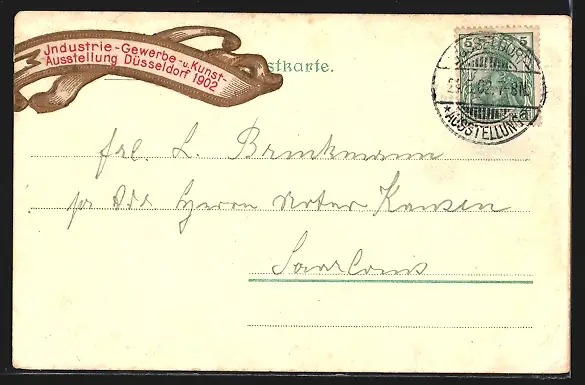 Jndustrie-Gewerbe-u. Kunst-
Ausstellung Düsseldorf 1902
stkarte.
5 5
DÜSSELDORF
02. 7-8N
*AUSSTELLUNG
a
Frl. L. Brinkmann
Herrn Notar
Saarlouis